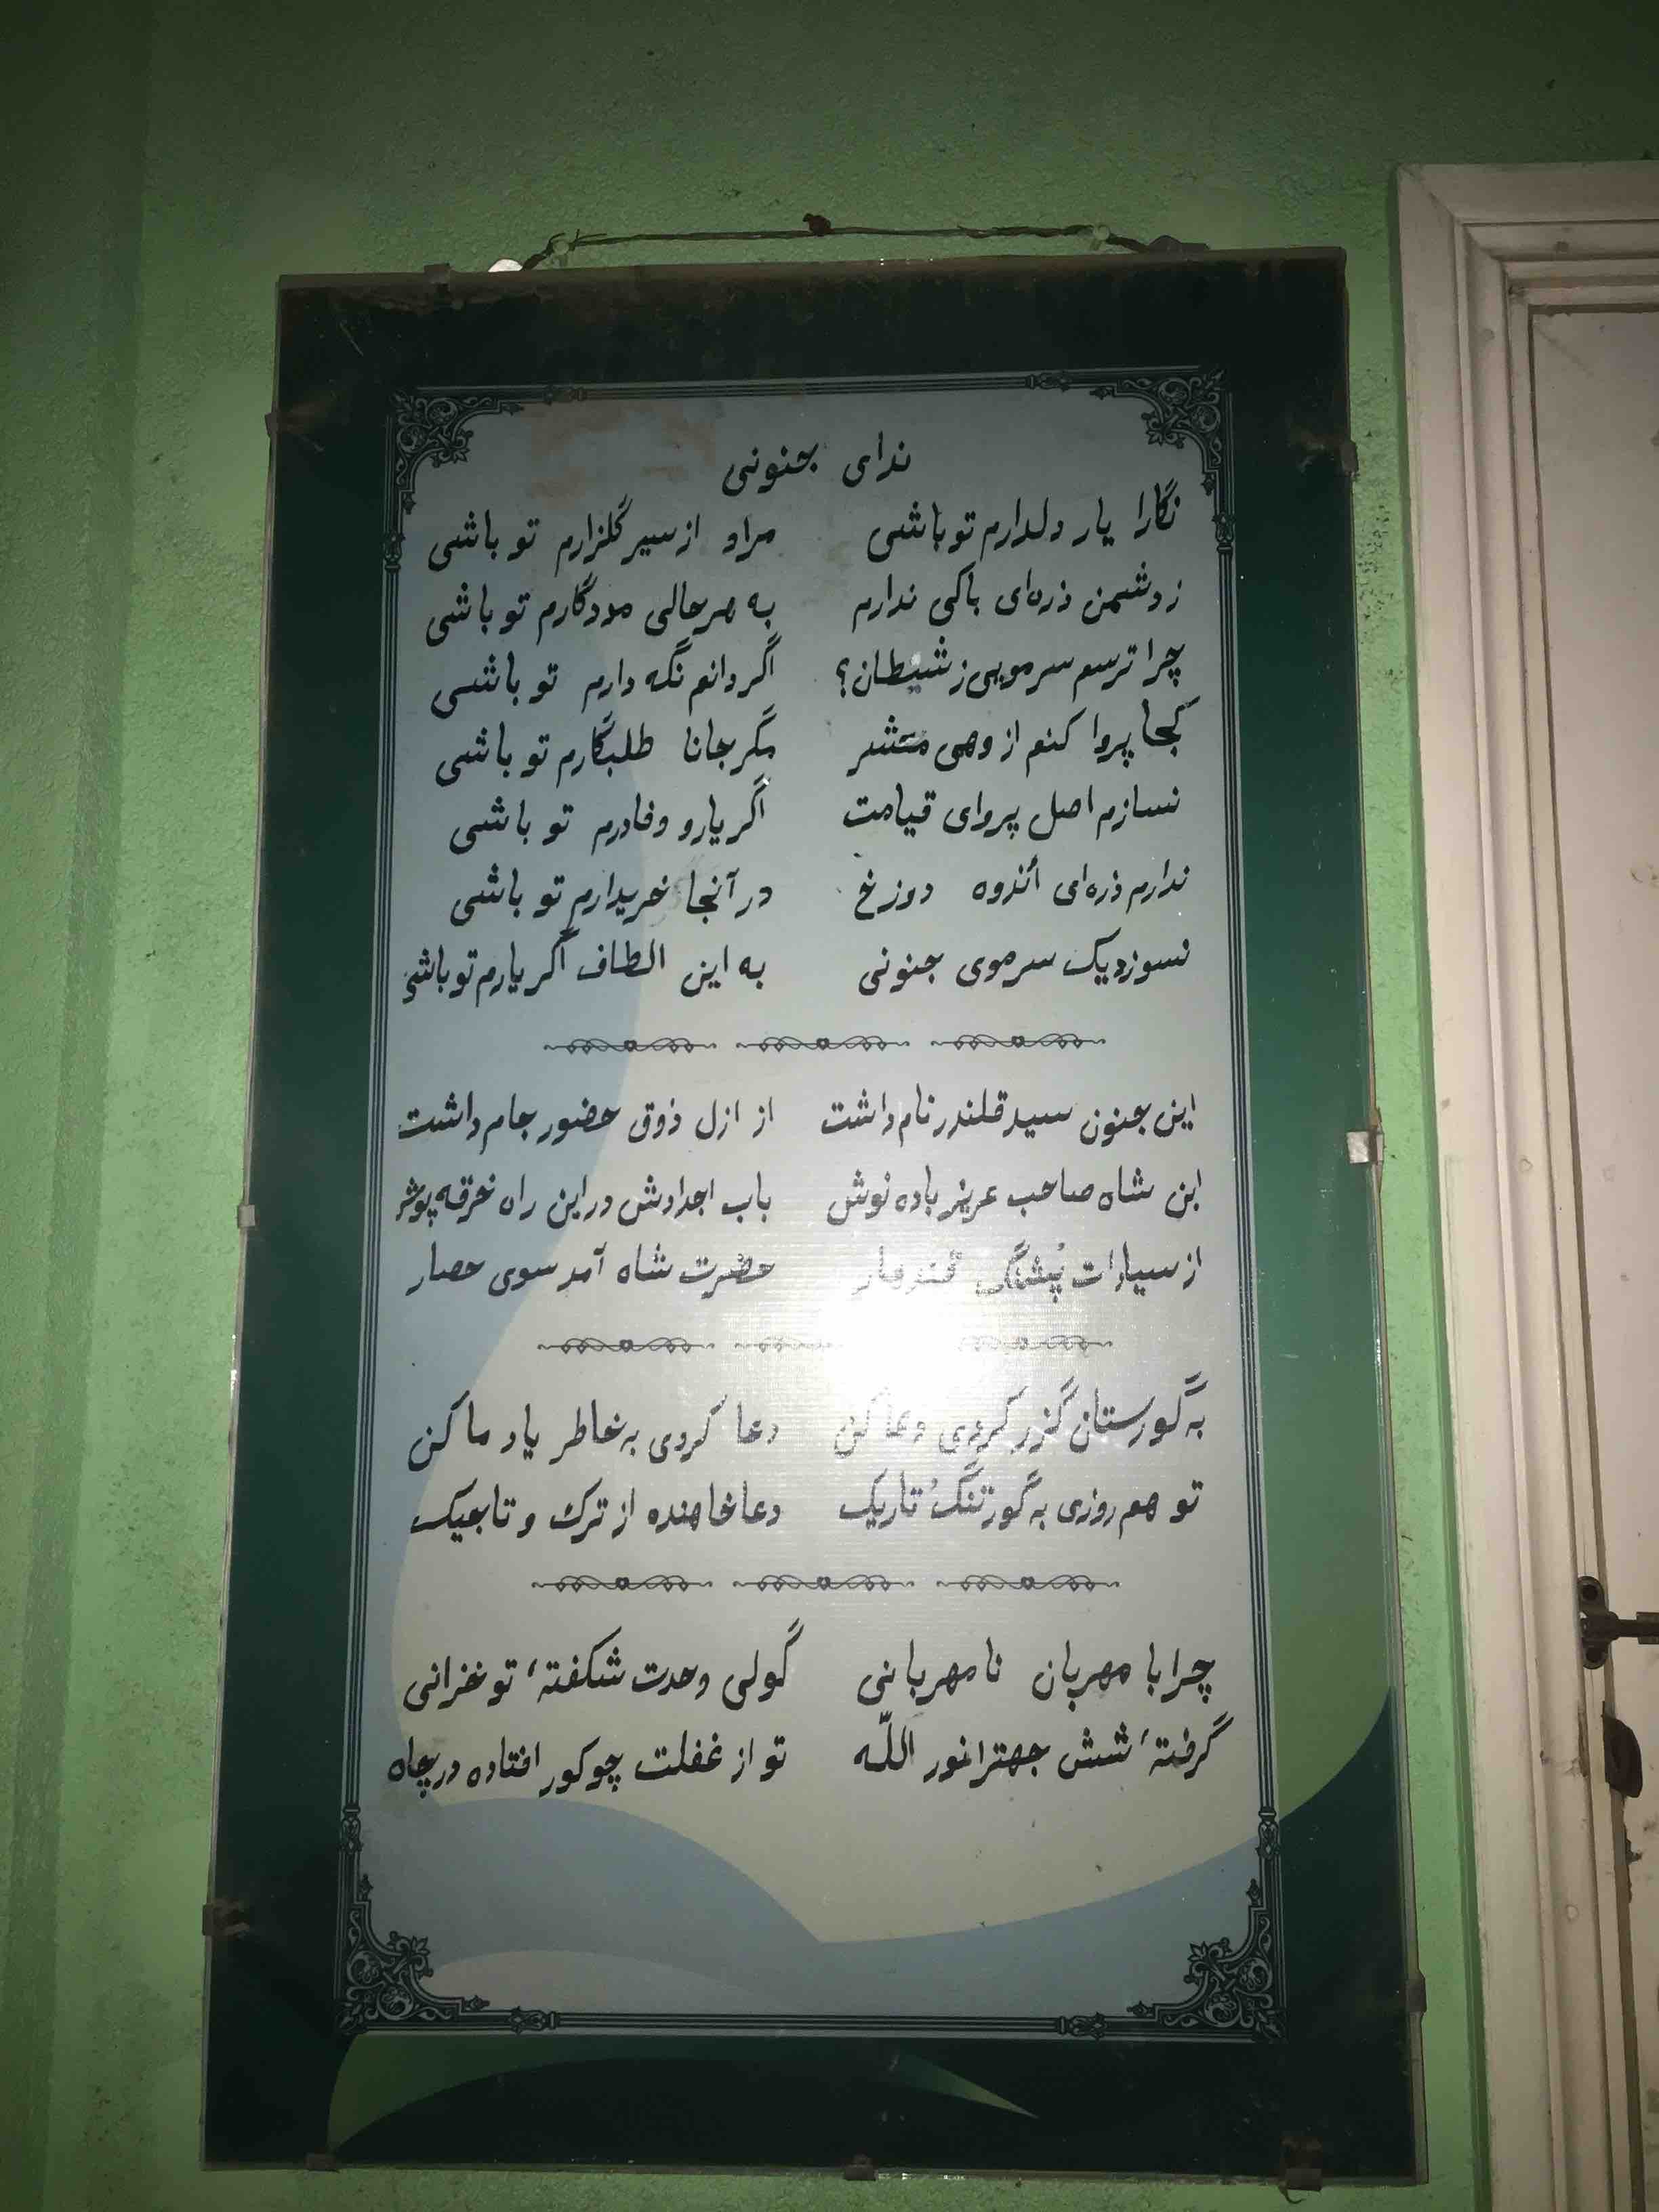 ندای جنونی
نگارا یار دلدارم تو باشی مراد از سیر گلزارم تو باشی
ز دشمن ذره‌ای باکی ندارم به هر حالی مددگارم تو باشی
چرا ترسم سر مویی ز شیطان؟ اگر دانم نگه دارم تو باشی
کجا پروا کنم از وهی متشر مگر جانا طلبگارم تو باشی
نسازم اصل پروای قیامت اگر یارو وفادرم تو باشی
ندارم ذره‌ای أندوه دوزخ در آنجا خریدارم تو باشی
نسوزد یک سر موی جنونی به این الطاف اگر یارم تو باشی
این جنون سید قلندر نام داشت از ازل ذوق حضور جام داشت
ابن شاه صاحب عزیز باده نوش باب اجدادش در این راه خرقه پوش
از سیارات پُشنگی قندهار حضرت شاه آمد سوی حصار
به گورستان گزر کردی دعا کن دعا کردی به خاطر یاد ما کن
تو هم روزی به گور تنگُ تاریک دعا خاهنده از ترک و تاجیک
چرا با مهربان نا مهربانی گولی وحدت شکفتهٔ تو خزانی
گرفتهٔ شش جهترا نور اللّه تو از غفلت چو کور افتاده در چاه